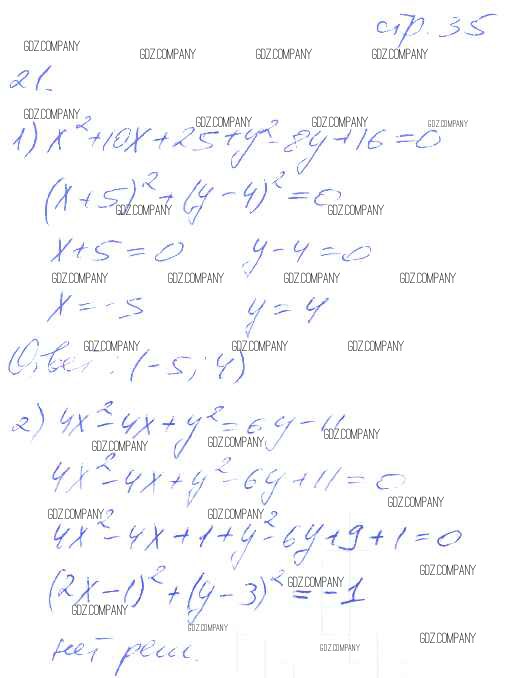 стр. 35
GDZ.COMPANY GDZ.COMPANY GDZ.COMPANY GDZ.COMPANY
21.
GDZ.COMPANY GDZ.COMPANY GDZ.COMPANY GDZ.COMPANY
1) x² + 10x + 25 + y² - 8y + 16 = 0
(x + 5)² + (y - 4)² = 0
GDZ.COMPANY GDZ.COMPANY
x + 5 = 0 y - 4 = 0
GDZ.COMPANY GDZ.COMPANY GDZ.COMPANY GDZ.COMPANY
x = -5 y = 4
GDZ.COMPANY GDZ.COMPANY GDZ.COMPANY
Ответ: (-5; 4)
2) 4x² - 4x + y² = 6y - 11
GDZ.COMPANY GDZ.COMPANY GDZ.COMPANY
4x² - 4x + y² - 6y + 11 = 0
GDZ.COMPANY
GDZ.COMPANY GDZ.COMPANY
4x² - 4x + 1 + y² - 6y + 9 + 1 = 0
GDZ.COMPANY
(2x - 1)² + (y - 3)² = -1
GDZ.COMPANY GDZ.COMPANY
GDZ.COMPANY
нет реш.
GDZ.COMPANY GDZ.COMPANY